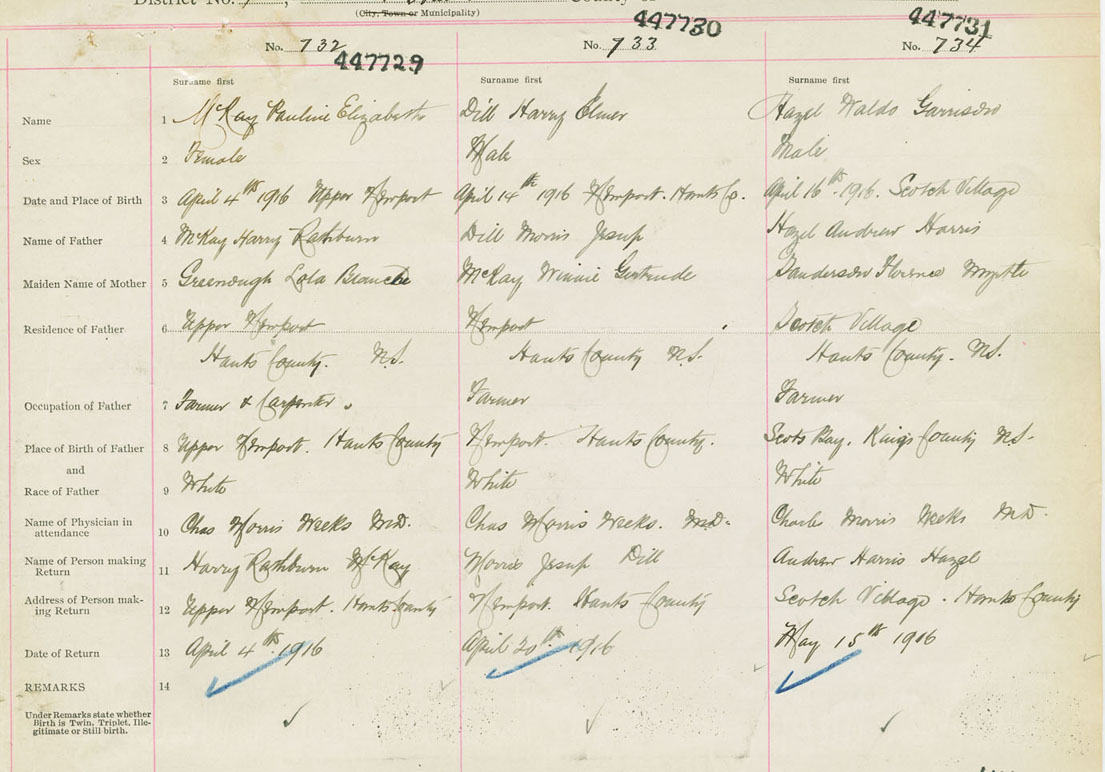 District No.
(City, Town or Municipality)
447730
447731
No. 732
No. 733
No. 734
447729
Surname first
Surname first
Surname first
Name 1 McKay Pauline Elizabeth Dill Harry Elmer Hazel Waldo Garrison
Sex 2 Female Male Male
Date and Place of Birth 3 April 4th 1916 Upper Newport April 14th 1916 Newport. Hants Co. April 16th 1916. Scotch Village
Name of Father 4 McKay Harry Rathburn Dill Morris Jesup Hazel Andrew Harris
Maiden Name of Mother 5 Greenough Lola Blanche McKay Winnie Gertrude Sanderson Florence Myrtle
Residence of Father 6 Upper Newport Newport Scotch Village
Hants County. N.S. Hants County N.S. Hants County. N.S.
Occupation of Father 7 Farmer & Carpenter. Farmer Farmer
Place of Birth of Father 8 Upper Newport. Hants County Newport. Hants County. Scots Bay, Kings County N.S.
and
Race of Father 9 White White White
Name of Physician in attendance 10 Chas Morris Weeks M.D. Chas Morris Weeks. M.D. Charles Morris Weeks M.D.
Name of Person making Return 11 Harry Rathburn McKay Morris Jesup Dill Andrew Harris Hazel
Address of Person making Return 12 Upper Newport. Hants County Newport. Hants County Scotch Village. Hants County
Date of Return 13 April 4th 1916 April 20th 1916 May 15th 1916
REMARKS 14
Under Remarks state whether
Birth is Twin, Triplet, Ille-
gitimate or Still birth.